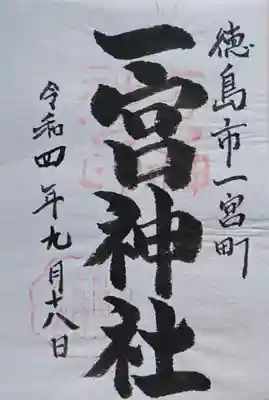 徳島市一宮町
一宮神社
令和四年九月十八日